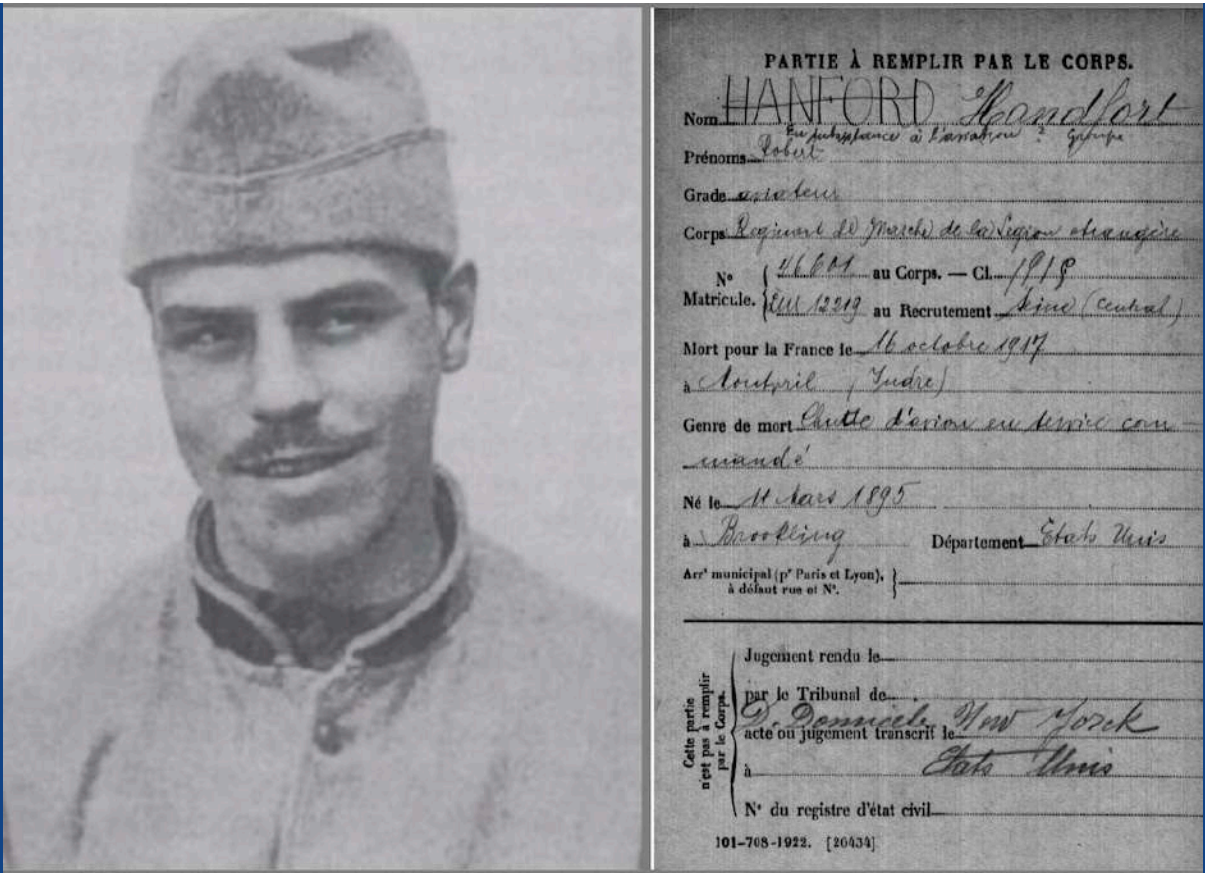 PARTIE À REMPLIR PAR LE CORPS.
Nom HANFORD Handfort
En subsistance à l'aviation 2e Groupe
Prénoms Robert
Grade aviateur
Corps Regiment de Marche de la Legion etrangère
N° Matricule. { 46601 au Corps. — Cl. 1918
12219 au Recrutement Seine (Central)
Mort pour la France le 16 octobre 1917
à (Indre)
Genre de mort Chutte d'avion en service com-
mandé
Né le 11 Mars 1895
à Brookling Département Etats Unis
Arrt municipal (pr Paris et Lyon), à défaut rue et N°. }
Cette partie n'est pas à remplir par le Corps.
Jugement rendu le
par le Tribunal de
D. Domicile New Yorck
acte ou jugement transcrit le
à Etats Unis
N° du registre d'état civil
101-708-1922. [26434]